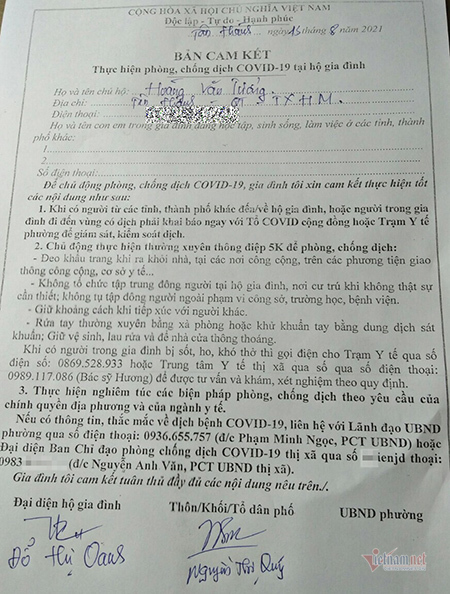 CỘNG HÒA XÃ HỘI CHỦ NGHĨA VIỆT NAM
Độc lập - Tự do - Hạnh phúc
ngày 13 tháng 8 năm 2021
BẢN CAM KẾT
Thực hiện phòng, chống dịch COVID-19 tại hộ gia đình
Họ và tên chủ hộ: Hoàng Văn Tưởng
Địa chỉ: TXHM.
Điện thoại:
Họ và tên con em trong gia đình đang học tập, sinh sống, làm việc ở các tỉnh, thành
phố khác:
1.
2.
Số điện thoại:
Để chủ động phòng, chống dịch COVID-19, gia đình tôi xin cam kết thực hiện tốt
các nội dung như sau:
1. Khi có người từ các tỉnh, thành phố khác đến/về hộ gia đình, hoặc người trong gia
đình đi đến vùng có dịch phải khai báo ngay với Tổ COVID cộng đồng hoặc Trạm Y tế
phường để giám sát, kiểm soát dịch.
2. Chủ động thực hiện thường xuyên thông điệp 5K để phòng, chống dịch:
- Đeo khẩu trang khi ra khỏi nhà, tại các nơi công cộng, trên các phương tiện giao
thông công cộng, cơ sở y tế...
- Không tổ chức tập trung đông người tại hộ gia đình, nơi cư trú khi không thật sự
cần thiết; không tụ tập đông người ngoài phạm vi công sở, trường học, bệnh viện.
- Giữ khoảng cách khi tiếp xúc với người khác.
- Rửa tay thường xuyên bằng xà phòng hoặc khử khuẩn tay bằng dung dịch sát
khuẩn; Giữ vệ sinh, lau rửa và để nhà cửa thông thoáng.
Khi có người trong gia đình bị sốt, ho, khó thở thì gọi điện cho Trạm Y tế qua số
điện số: 0869.528.933 hoặc Trung tâm Y tế thị xã qua số điện thoại:
0989.117.086 (Bác sỹ Hương) để được tư vấn và khám, xét nghiệm theo quy định.
3. Thực hiện nghiêm túc các biện pháp phòng, chống dịch theo yêu cầu của
chính quyền địa phương và của ngành y tế.
Nếu có thông tin, thắc mắc về dịch bệnh COVID-19, liên hệ với Lãnh đạo UBND
phường qua số điện thoại: 0936.655.757 (đ/c Phạm Minh Ngọc, PCT UBND) hoặc
Đại diện Ban Chỉ đạo phòng chống dịch COVID-19 thị xã qua số ienjd thoại:
0983 (đ/c Nguyễn Anh Văn, PCT UBND thị xã).
Gia đình tôi cam kết tuân thủ đầy đủ các nội dung nêu trên./.
Đại diện hộ gia đình Thôn/Khối/Tổ dân phố UBND phường
Đỗ Thị Oanh Nguyễn Thị Quý
Vietnamnet